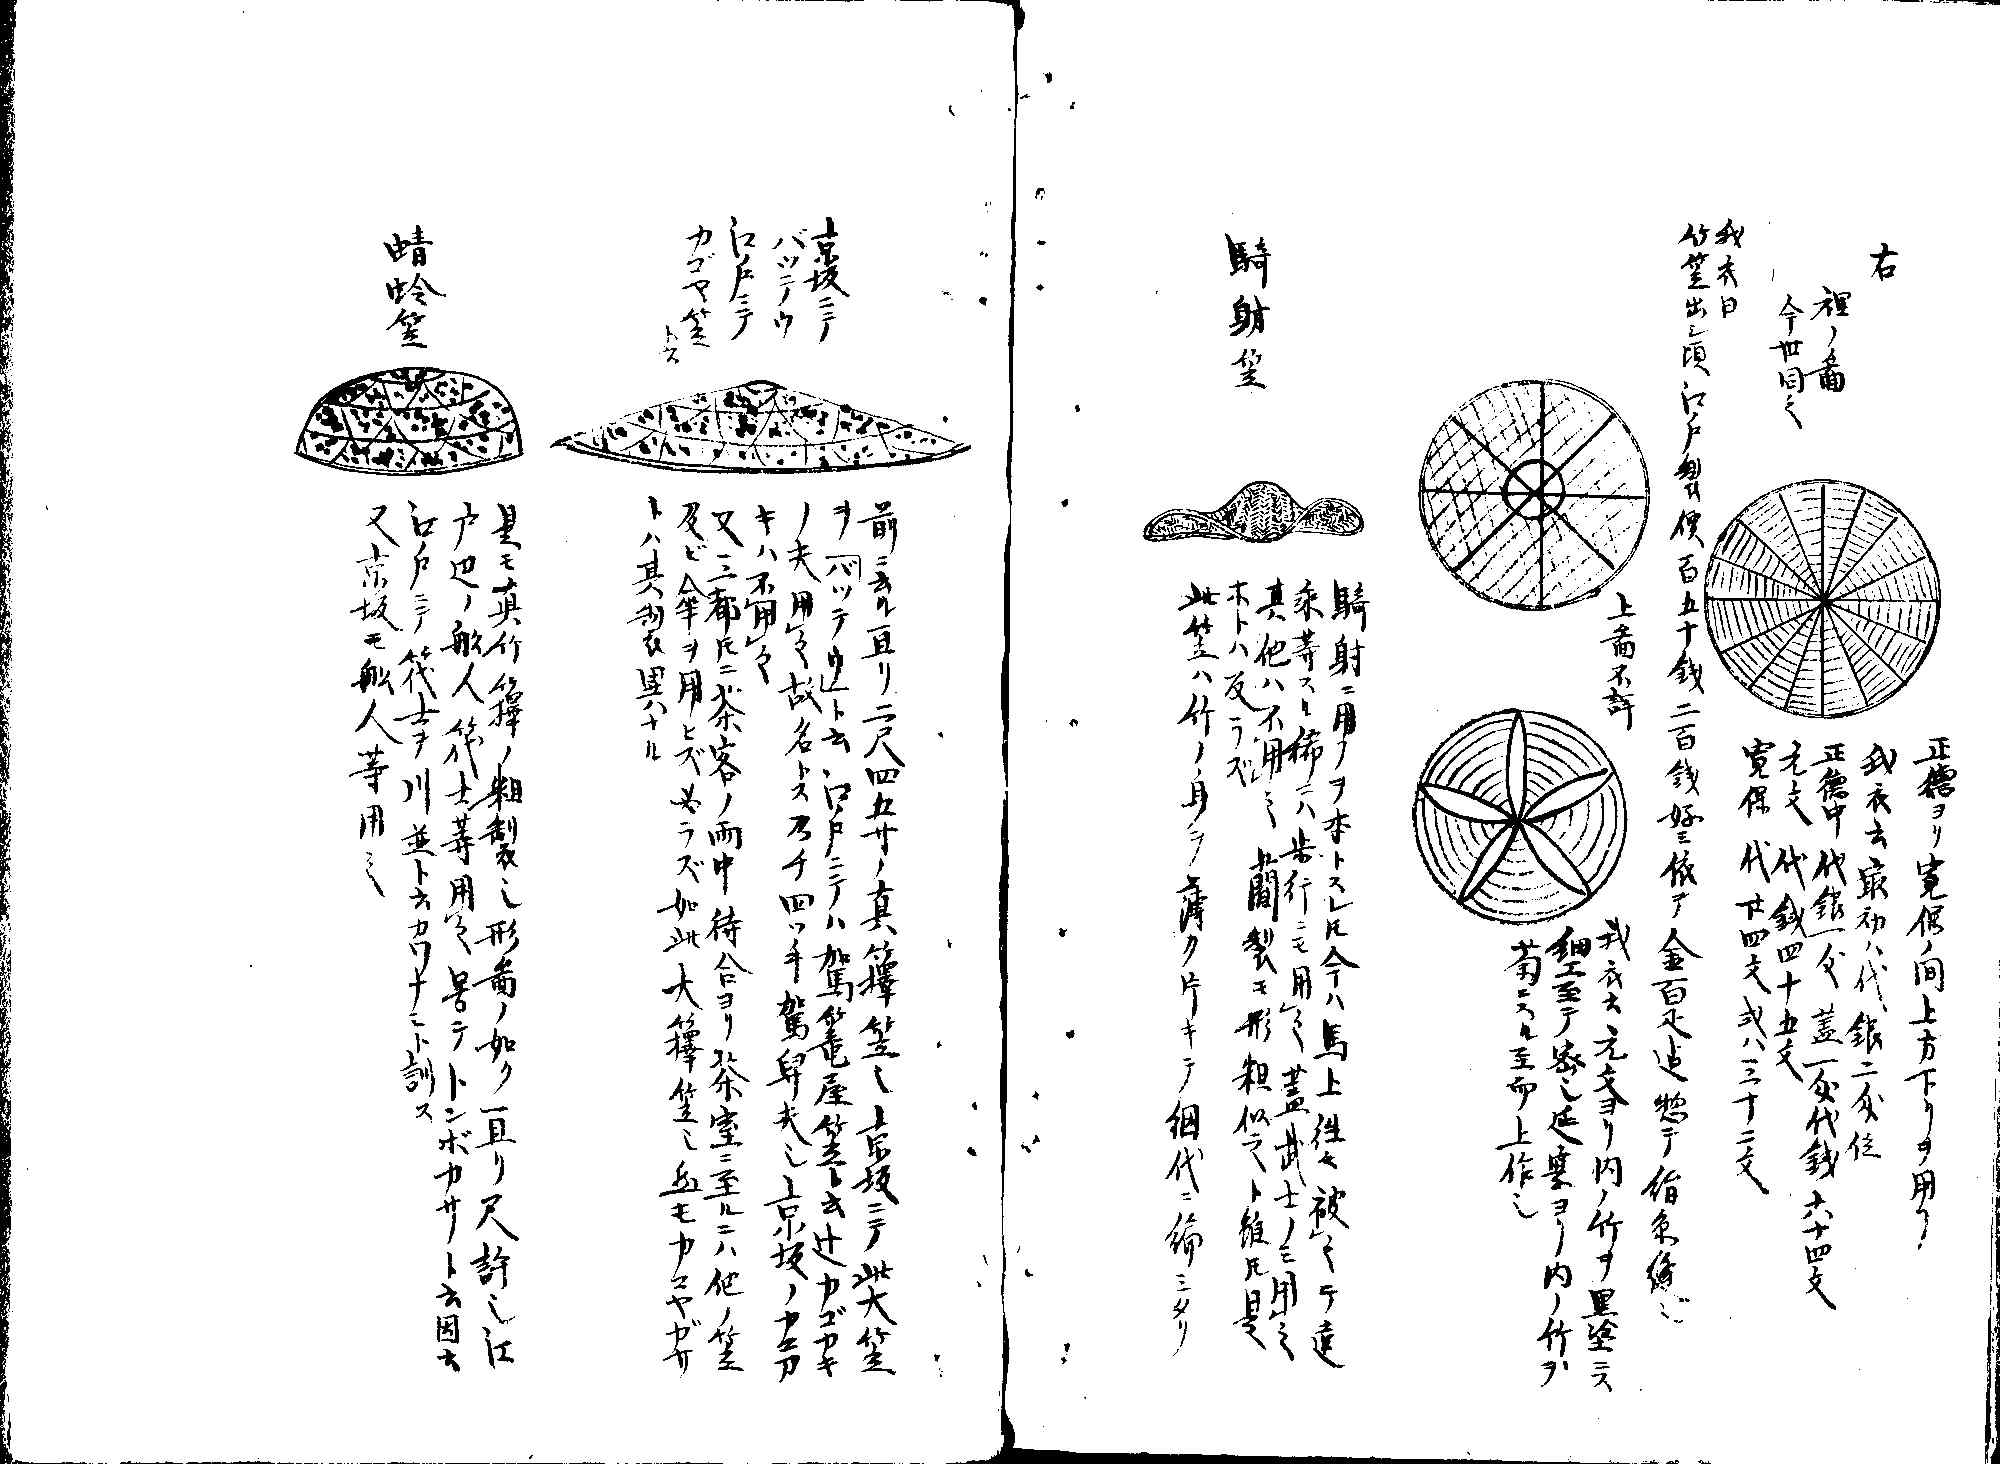 右
裡ノ啚
今世同之
正德ヨリ寛保ノ間上方下リヲ用フ
我衣云最初ハ代銀二匁位
正德中代銀一匁蓋一匁代銭六十四文
元文代銭四十五文
寛保代廿四文或ハ三十二文
我衣曰
竹笠出シ頃江戸製価百五十銭二百銭好ミ依テ金百疋迠惣テ絹糸縫ジ
上啚不許
我衣云元文ヨリ内ノ竹ヲ黒塗ニス
細工至テ密也延宝ヨリ内ノ竹ヲ
菊ニスル至而上作也
騎射笠
騎射ニ用フヲ本トスレ𪜈今ハ馬上徃々被之テ遠
乗等スル稀ニハ歩行ニモ用之蓋武士ノミ用之
其他ハ不用之 藺製モ形粗似之ト雖𪜈是
ホトハ反ラズ
此笠ハ竹ノ身ヲ薄ク片キテ網代ニ編ミタリ
京坂ニテ
バツテウ
江戸ニテ
カゴヤ笠
トス
前ニ云ル亘リ二尺四五寸ノ真籜笠也京坂ニテ此大笠
ヲ「バツテウ」ト云江戸ニテハ駕篭屋笠ト云辻カゴカキ
ノ夫用之故名トス乃チ四ツ手駕舁夫也京坂ノカゴカ
キハ不用之
又三都𪜈ニ茶客ノ雨中待合ヨリ茶室ニ至ルニハ他ノ笠
及ビ傘ヲ用ヒズ必ラズ如此大籜笠也然モカコヤガサ
トハ其制衣異ナル
蜻蛉笠
是モ真竹籜ノ粗製也形啚ノ如ク亘リ尺許也江
戸辺ノ舩人筏士等用之畧テトンボカサト云因云
江戸ニテ筏士ヲ川並ト云カワナミト訓ス
又京坂モ舩人等用之